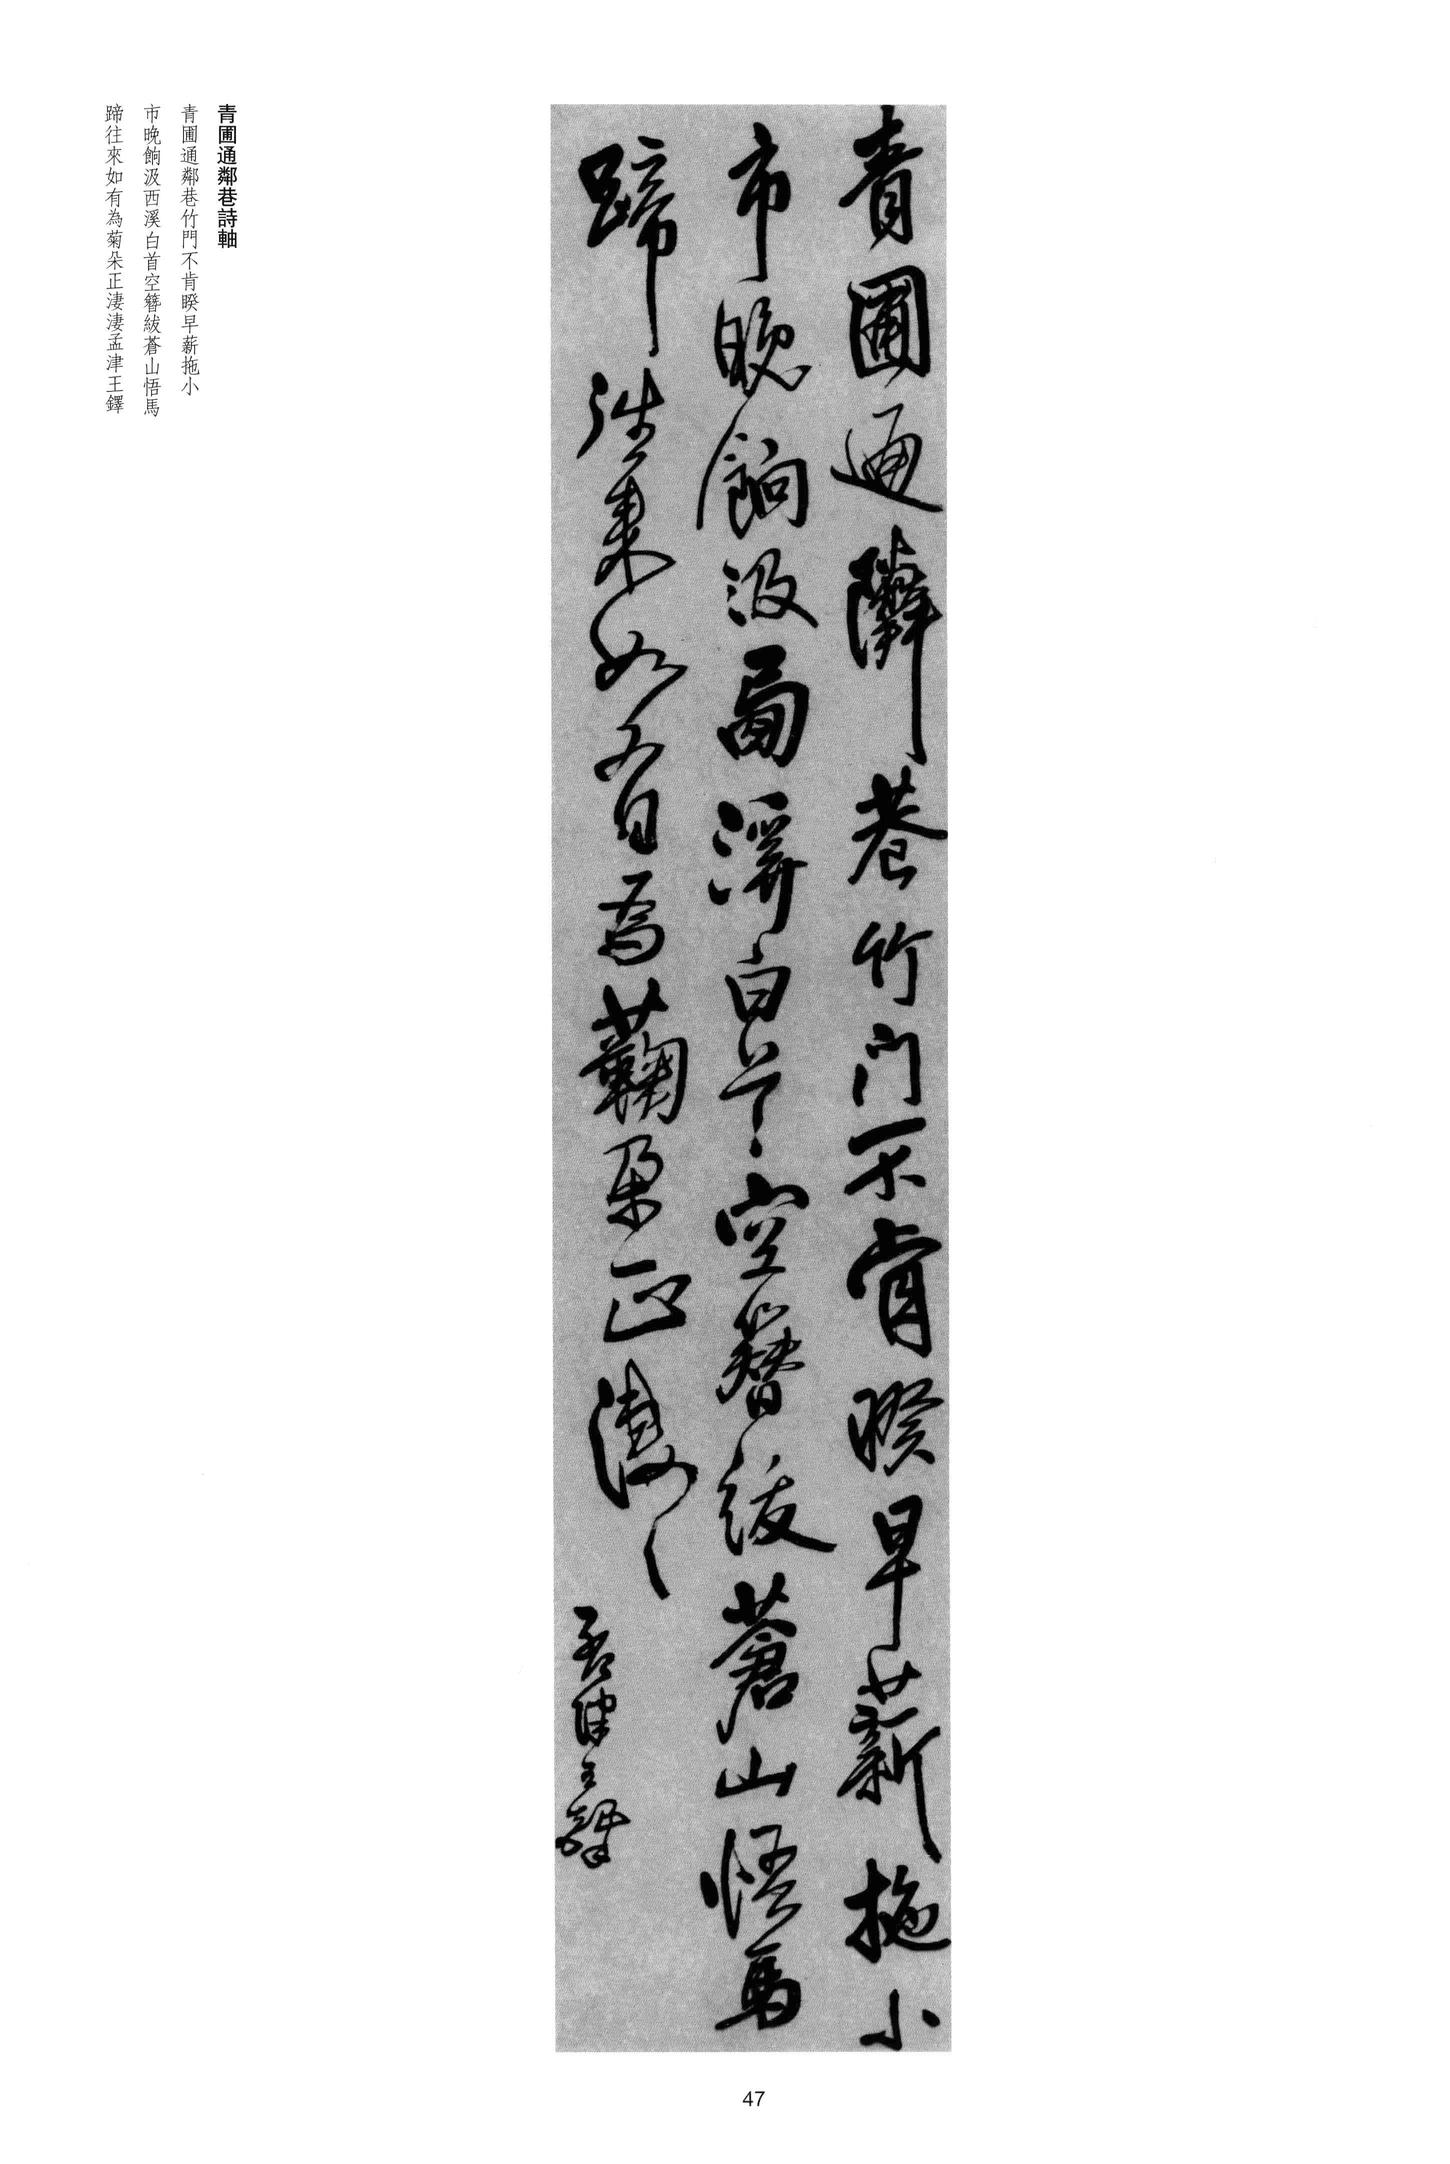 青圃通鄰巷詩軸
青圃通鄰巷竹門不肯睽早薪拖小
市晚餉汲西溪白首空簪紱蒼山悟馬
蹄往來如有為菊朵正淒淒孟津王鐸
青圃通鄰巷竹門不肯睽早薪拖小
市晚餉汲西溪白首空簪紱蒼山悟馬
蹄往來如有為菊朵正淒〻孟津王鐸
47